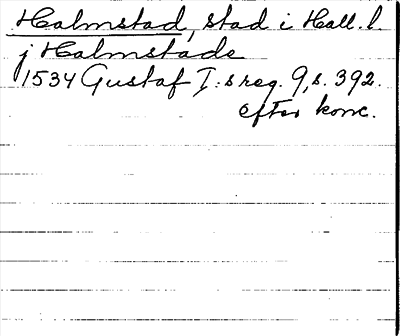 Halmstad, stad i Hall. l.
j Halmstade
1534 Gustaf I:s reg. 9, s. 392.
efter konc.